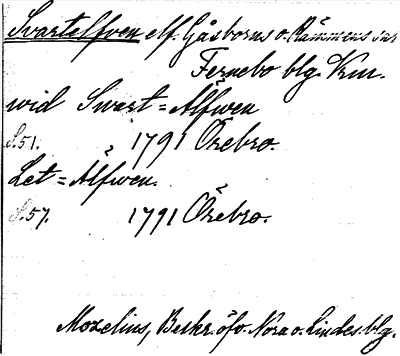 Svartelfven elf. Gåsborns o. Rämmens snr
Fernebo blg. Vrm.
wid Swart=Älfwen
S.51. 1791 Örebro.
Let=Älfwen.
S.57. 1791 Örebro.
Mozelius, Beskr. öfv. Nora o. Lindes blg.